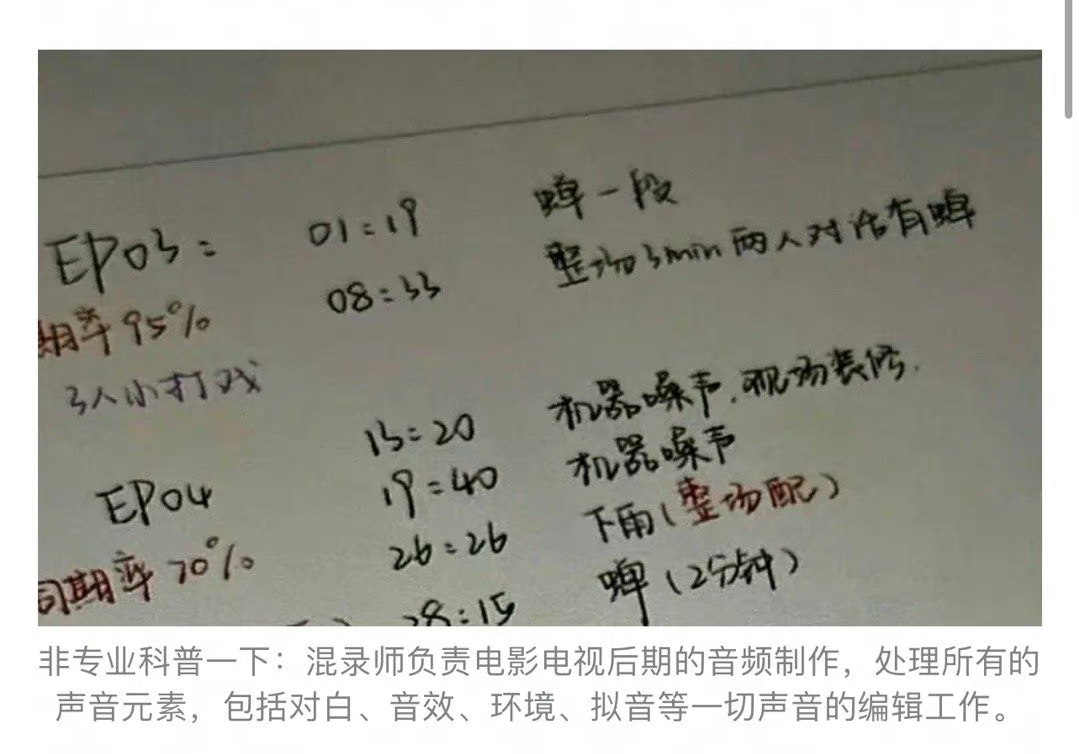 EP03: 01:19 蝉一段
08:33 整场3min两人对话有蝉
期率95%
3人小打戏
13:20 机器噪声.现场装修.
EP04 19:40 机器噪声
26:26 下雨(整场配)
同期率70%
28:15 蝉(2分钟)
非专业科普一下：混录师负责电影电视后期的音频制作，处理所有的
声音元素，包括对白、音效、环境、拟音等一切声音的编辑工作。